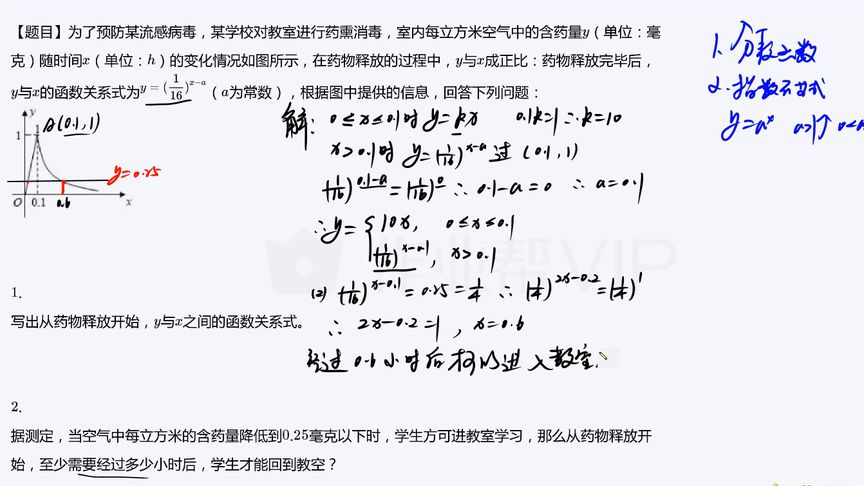 【题目】为了预防某流感病毒，某学校对教室进行药熏消毒，室内每立方米空气中的含药量y（单位：毫
克）随时间x（单位：h）的变化情况如图所示，在药物释放的过程中，y与x成正比：药物释放完毕后，
y与x的函数关系式为y=(1/16)^{x-a}（a为常数），根据图中提供的信息，回答下列问题：
y
A(0.1,1)
1
y=0.25
O 0.1 0.6 x
解: 0≤x≤0.1时 y=kx 0.1k=1∴k=10
x>0.1时 y=(1/16)^{x-a} 过 (0.1,1)
(1/16)^{0.1-a}=(1/16)^0 ∴0.1-a=0 ∴a=0.1
∴y={10x, 0≤x≤0.1
(1/16)^{x-0.1}, x>0.1
(2) (1/16)^{x-0.1}=0.25=1/4 ∴(1/4)^{2x-0.2}=(1/4)^1
∴2x-0.2=1, x=0.6
经过0.6小时后可以进入教室.
1.
写出从药物释放开始，y与x之间的函数关系式。
2.
据测定，当空气中每立方米的含药量降低到0.25毫克以下时，学生方可进教室学习，那么从药物释放开
始，至少需要经过多少小时后，学生才能回到教空？
1. 分段函数
2. 指数不等式
y=a^x a>1↑ 0<a
帮VIP